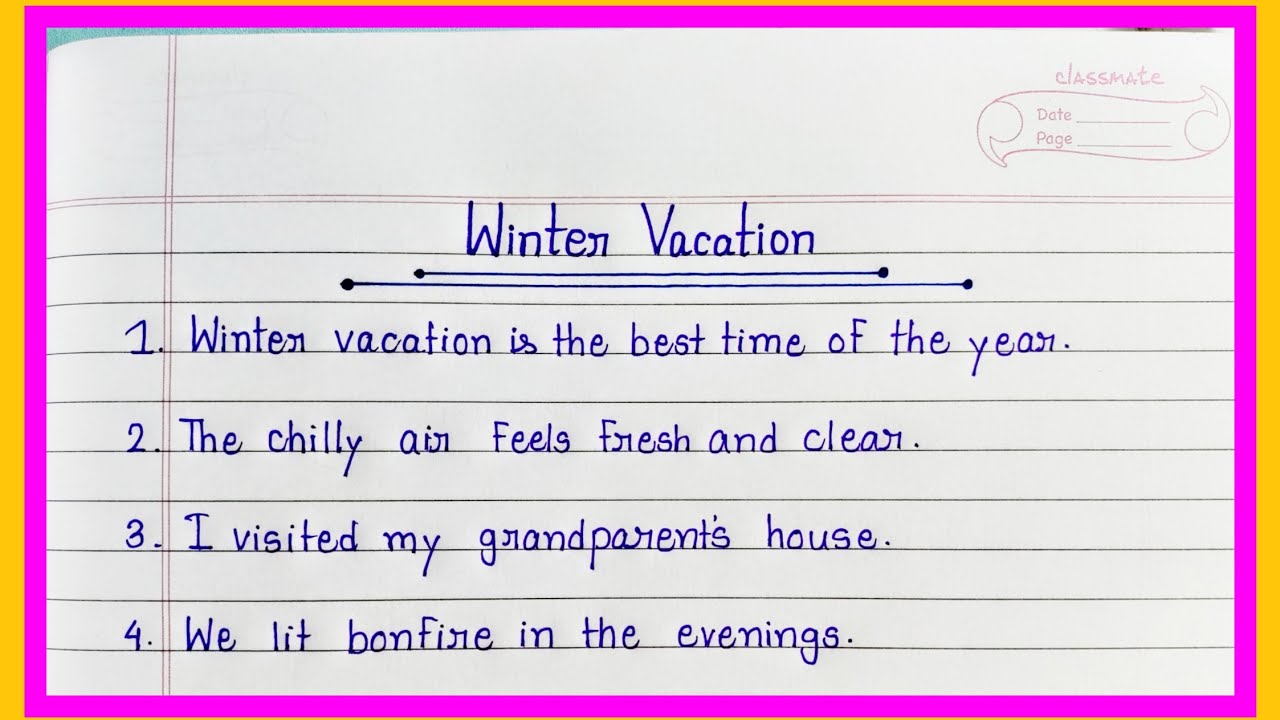 classmate
Date
Page
Winter Vacation
1. Winter vacation is the best time of the year.
2. The chilly air Feels fresh and clear.
3. I visited my grandparent's house.
4. We lit bonfire in the evenings.